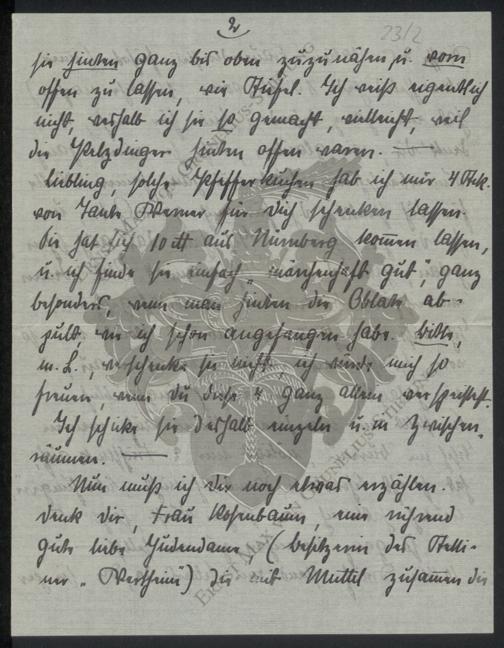 2
23/2
sie hinten ganz bis oben zuzunähen, u. vorn
offen zu lassen, wie Stiefel. Ich weiß eigentlich
nicht, weshalb ich sie so gemacht, vielleicht, weil
die Pelzdinger hinten offen waren. —
Liebling solche Pfefferkuchen hab ich nur 4 Stck.
von Tante Werner für Dich schenken lassen.
Die hat sich 10 ℔ aus Nürnberg kommen lassen,
u. ich finde sie einfach „märchenhaft gut", ganz
besonders, wenn man hinten die Oblate ab-
pult, wie ich schon angefangen habe. Bitte,
m. L., verschenke sie nicht, ich würde mich so
freuen, wenn Du diese 4 ganz allein verspeistest.
Ich schicke sie deshalb einzeln u. in Zwischen-
räumen. —
Nun muß ich Dir noch etwas erzählen.
Denk Dir, Frau Rosenbaum, eine rührend
gute liebe Judendame (Besitzerin des Stetti-
ner „Wertheim") die mit Muttel zusammen die